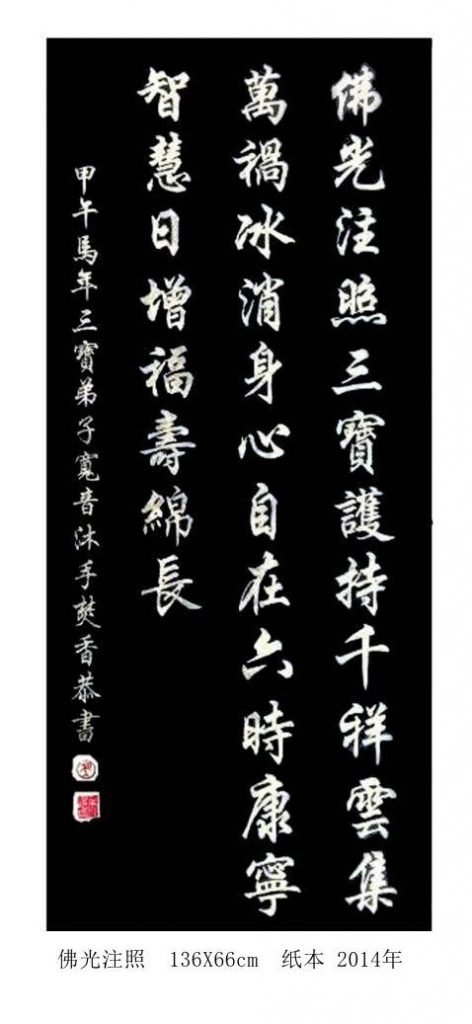 佛光注照三寶護持千祥雲集
萬禍冰消身心自在六時康寧
智慧日增福壽綿長
甲午馬年三寶弟子寬音沐手焚香恭書
佛光注照 136X66cm 纸本 2014年